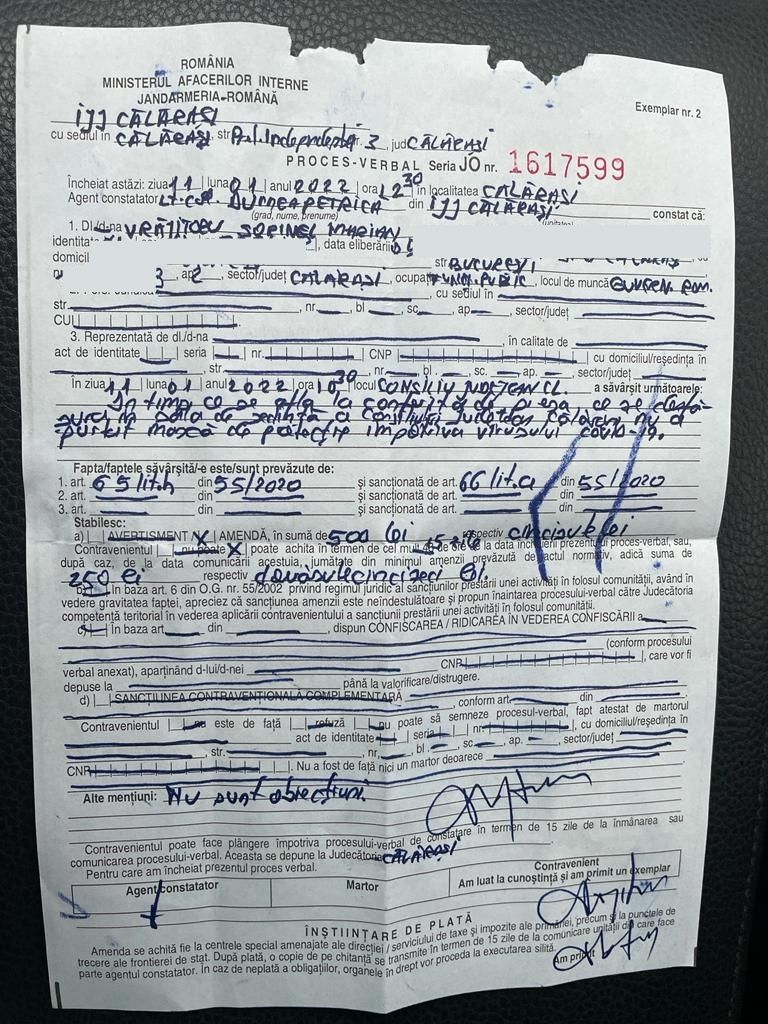 ROMÂNIA
MINISTERUL AFACERILOR INTERNE
JANDARMERIA ROMÂNĂ
Exemplar nr. 2
IJJ CĂLĂRAȘI
cu sediul în CĂLĂRAȘI, str. nr. 3, jud CĂLĂRAȘI
PROCES-VERBAL Seria JO nr. 1617599
Încheiat astăzi: ziua 11 luna 01 anul 2022 ora 12 30 în localitatea CĂLĂRAȘI
Agent constatator LT. COL. DUMEA PETRICĂ din IJJ CĂLĂRAȘI constat că:
(grad, nume, prenume)
1. Dl./d-na VRĂJITORU SORINEL MARIAN
identitate , data eliberării
domicil
str BUCUREȘTI
3, ap 2, sector/județ CĂLĂRAȘI, ocupaț FUNCȚ. PUBLIC, locul de muncă GUVERN. ROM.
, cu sediul în
str. , nr. , bl , sc. , ap. , sector/județ
CUI
3. Reprezentată de dl./d-na , în calitate de
act de identitate seria nr. CNP cu domiciliul/reședința în
, str. , nr. , bl. , sc. , ap. , sector/județ
În ziua 11 luna 01 anul 2022 ora 10 30 locul CONSILIU JUDEȚEAN CL. a săvârșit următoarele:
În timp ce se afla la conferința de presă ce se desfă-
șura în sala de ședință a Consiliului Județean Călărași nu a
purtat mască de protecție împotriva virusului covid-19.
Fapta/faptele săvârșită/-e este/sunt prevăzute de:
1. art. 65 lit.h din 55/2020 și sancționată de art. 66 lit.a din 55/2020
2. art. din și sancționată de art. din
3. art. din și sancționată de art. din
Stabilesc:
a) AVERTISMENT X AMENDĂ, în sumă de 500 lei respectiv cincisute lei
Contravenientul nu poate X poate achita în termen de cel mult de ore de la data încheierii prezentului proces-verbal, sau,
după caz, de la data comunicării acestuia, jumătate din minimul amenzii prevăzută de actul normativ, adică suma de
250 lei respectiv douăsutecincizeci lei.
b) În baza art. 6 din O.G. nr. 55/2002 privind regimul juridic al sancțiunilor prestării unei activități în folosul comunității, având în
vedere gravitatea faptei, apreciez că sancțiunea amenzii este neîndestulătoare și propun înaintarea procesului-verbal către Judecătoria
competentă teritorial în vederea aplicării contravenientului a sancțiunii prestării unei activități în folosul comunității.
c) În baza art. din , dispun CONFISCAREA / RIDICAREA ÎN VEDEREA CONFISCĂRII a
(conform procesului
verbal anexat), aparținând d-lui/d-nei CNP , care vor fi
depuse la până la valorificare/distrugere.
d) SANCȚIUNEA CONTRAVENȚIONALĂ COMPLEMENTARĂ , conform art. din
Contravenientul nu este de față refuză nu poate să semneze procesul-verbal, fapt atestat de martorul
act de identitate seria nr. , cu domiciliul/reședința în
, str. , nr. , bl. , sc. , ap. , sector/județ
CNP . Nu a fost de față nici un martor deoarece
Alte mențiuni: Nu sunt obiecțiuni.
Contravenientul poate face plângere împotriva procesului-verbal de constatare în termen de 15 zile de la înmânarea sau
comunicarea procesului-verbal. Aceasta se depune la Judecătoria CĂLĂRAȘI
Pentru care am încheiat prezentul proces verbal.
Agent constatator
Martor
Contravenient
Am luat la cunoștință și am primit un exemplar
ÎNȘTIINȚARE DE PLATĂ
Amenda se achită fie la centrele special amenajate ale direcției / serviciului de taxe și impozite ale primăriei, precum și la punctele de
trecere ale frontierei de stat. După plată, o copie de pe chitanță se transmite în termen de 15 zile de la comunicare unității din care face
parte agentul constatator. În caz de neplată a obligațiilor, organele în drept vor proceda la executarea silită.
Am primit